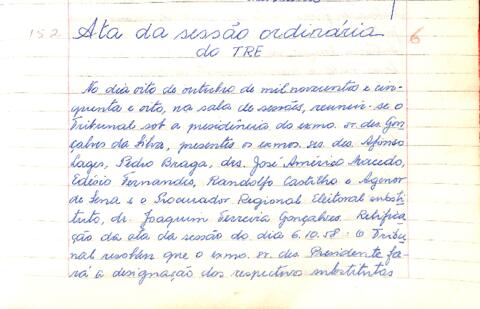 152 Ata da sessão ordinária 6
do TRE
No dia oito de outubro de mil novecentos e cin-
quenta e oito, na sala de sessões, reuniu-se o
Tribunal sob a presidência do exmo. sr. des. Gon
çalves da Silva, presentes os exmos. srs. des. Afonso
Lages, Pedro Braga, drs. José Américo Macedo,
Edésio Fernandes, Randolfo Castilho e Agenor
de Sena e o Procurador Regional Eleitoral substi-
tuto, dr. Joaquim Ferreira Gonçalves. Retifica-
ção da ata da sessão do dia 6.10.58: O Tribu-
nal resolveu que o exmo. sr. des. Presidente fa-
rá a designação dos respectivos substitutos